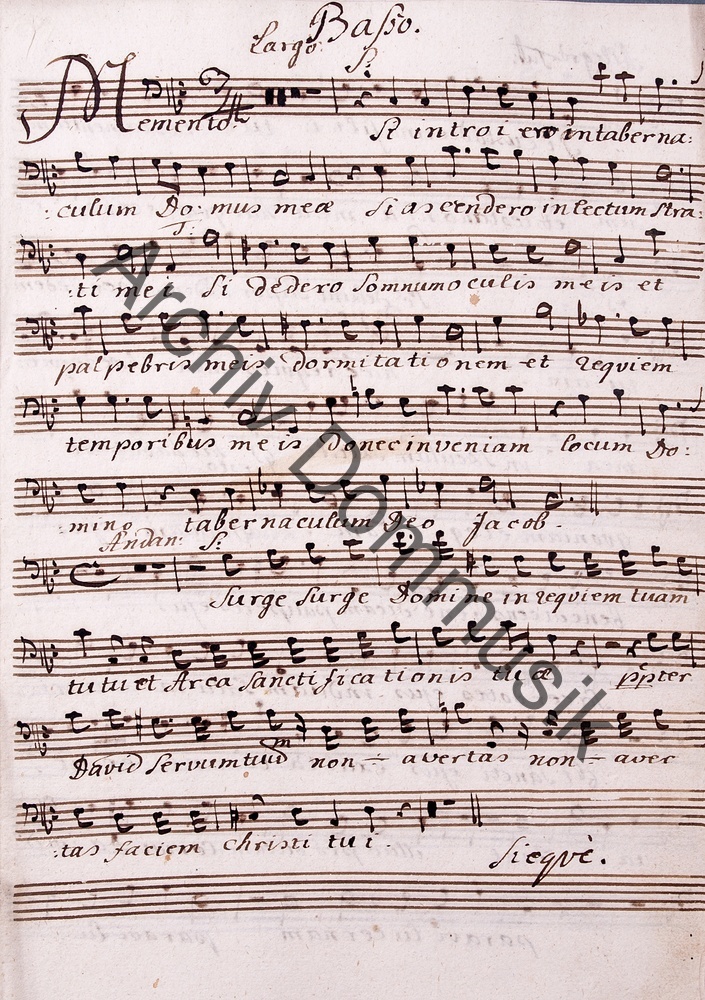 Basso.
Largo.
S:
Memento. Si introi ero in taberna:
:culum Do: mus meæ Si ascendero in lectum stra:
T:
:ti mei Si dedero somnum oculis meis et
palpebris meis dormitationem et requiem
temporibus meis donec inveniam locum Do:
:mino tabernaculum Deo Jacob.
Andan: S:
Surge surge Domine in requiem tuam
tu tu et Arca Sanctificationis tuæ ppter
David servum tuum non ÷ avertas non ÷ aver
:tas faciem christi tui.
Sieque.
Archiv Dommusik